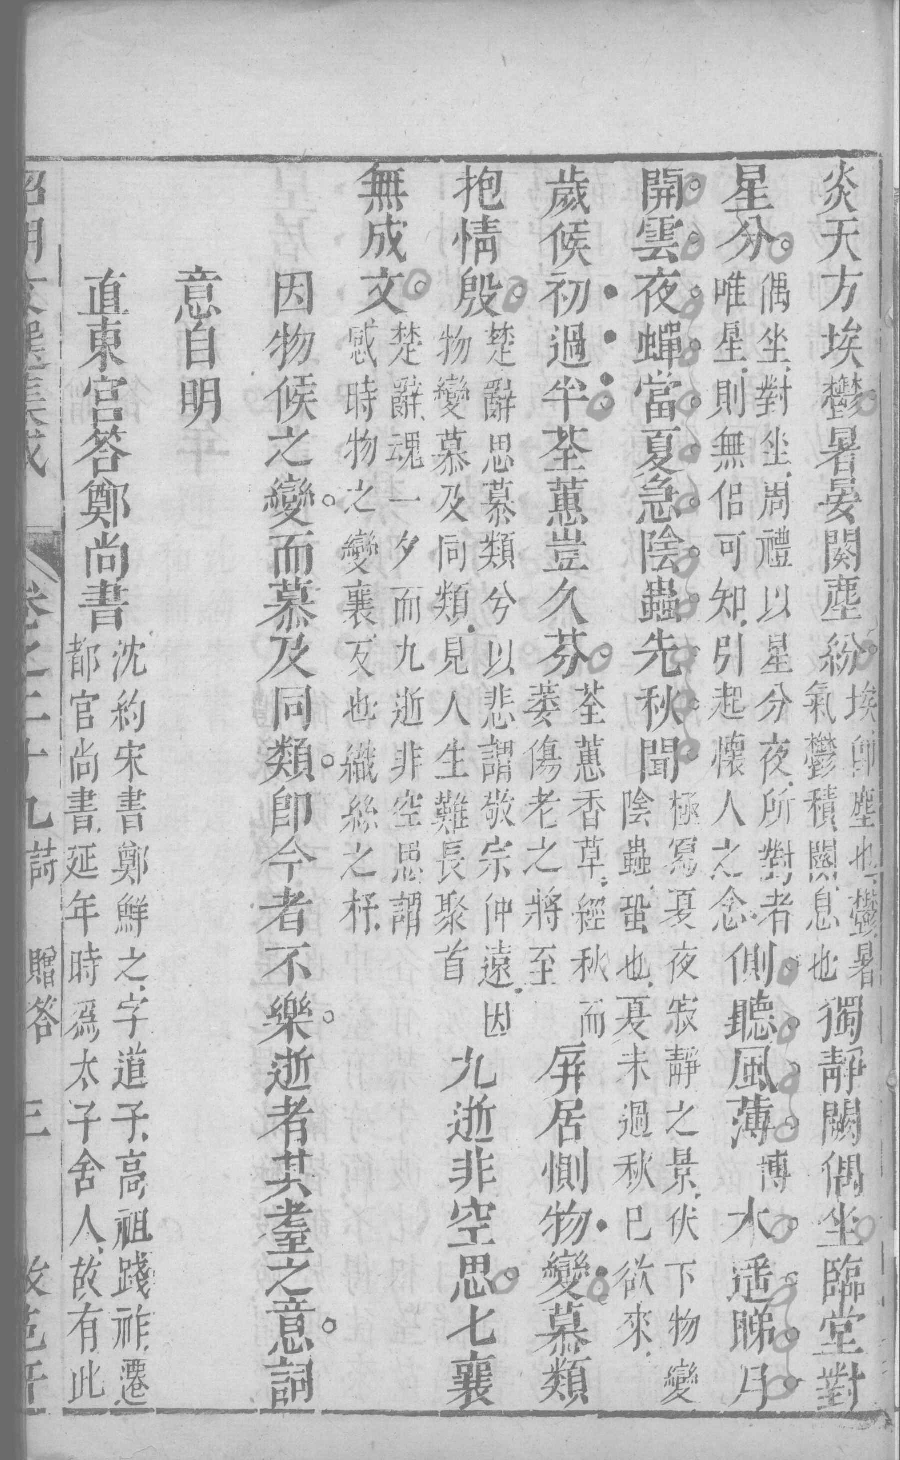 炎天方埃鬱暑晏闋塵紛埃即塵也鬱暑氣鬱積闋息也獨靜闕偶坐臨堂對
星分偶坐對坐周禮以星分夜所對者唯星則無侶可知引起懷人之念側聽風薄博木遥睇月
開雲夜蟬當夏急陰蟲先秋聞極寫夏夜寂靜之景伏下物變陰蟲蛩也夏未過秋已欲來
歲候初過半荃蕙豈久芬荃蕙香草經秋而萎傷老之將至屏居惻物變慕類
抱情殷楚辭思慕類兮以悲謂敬宗仲遠因物變慕及同類見人生難長聚首九逝非空思七襄
無成文楚辭魂一夕而九逝非空思謂感時物之變襄反也織絲之杼
因物候之變而慕及同類即今者不樂逝者其耋之意詞
意自明
直東宮答鄭尚書沈約宋書鄭鮮之字道子高祖踐祚遷都官尚書延年時爲太子舍人故有此
昭明文選集成 卷之二十九 詩 贈答 三